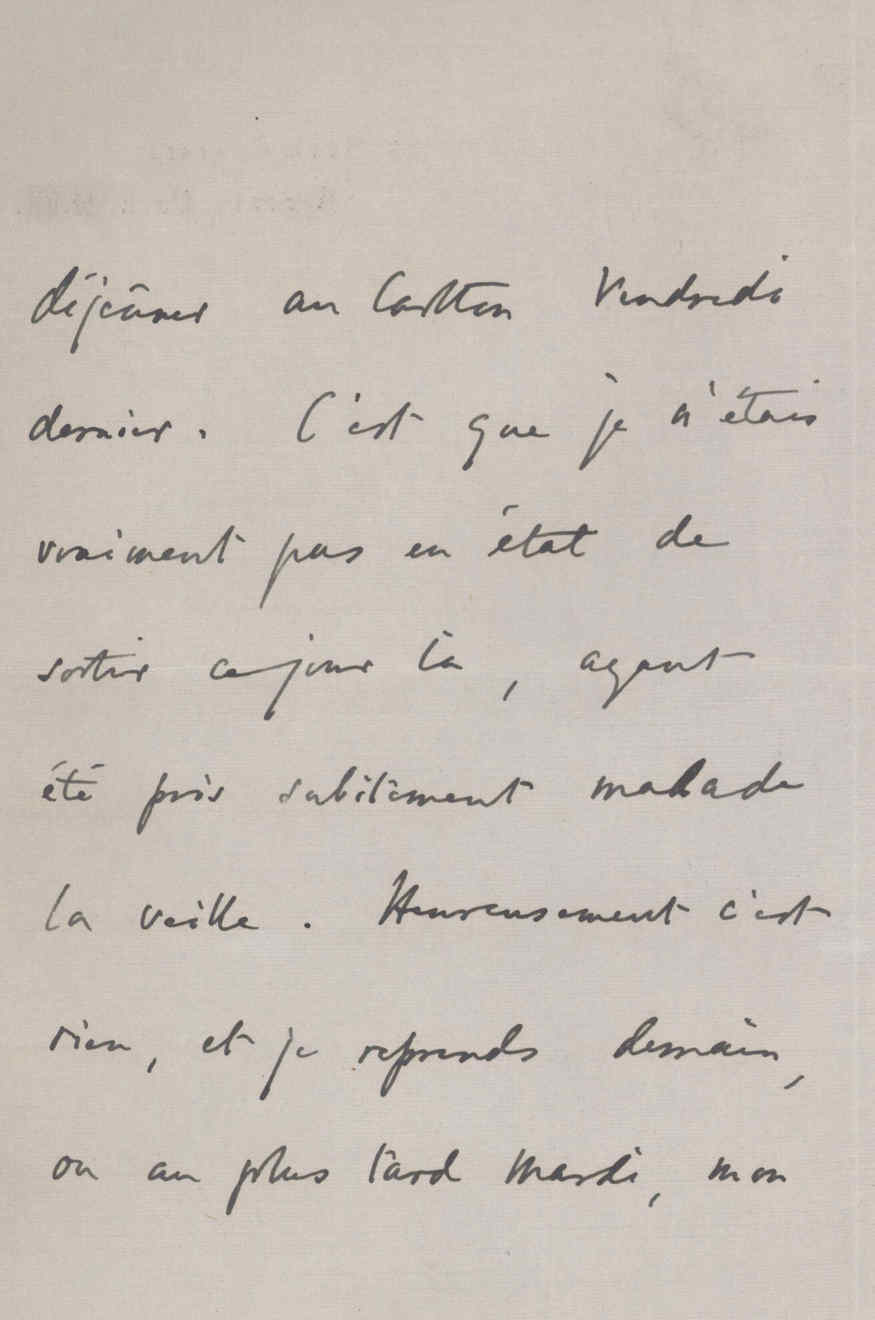 déjeûner au Carlton Vendredi
dernier. C'est que je n'étais
vraiment pas en état de
sortir ce jour là, ayant
été pris subitement malade
la veille. Heureusement c'est
rien, et je reprends demain,
ou au plus tard Mardi, mon